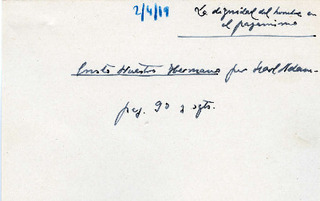 2/4/19
La dignidad del hombre en
el paganismo
Cristo Nuestro Hermano por Karl Adam-
pag. 90 y sgts.